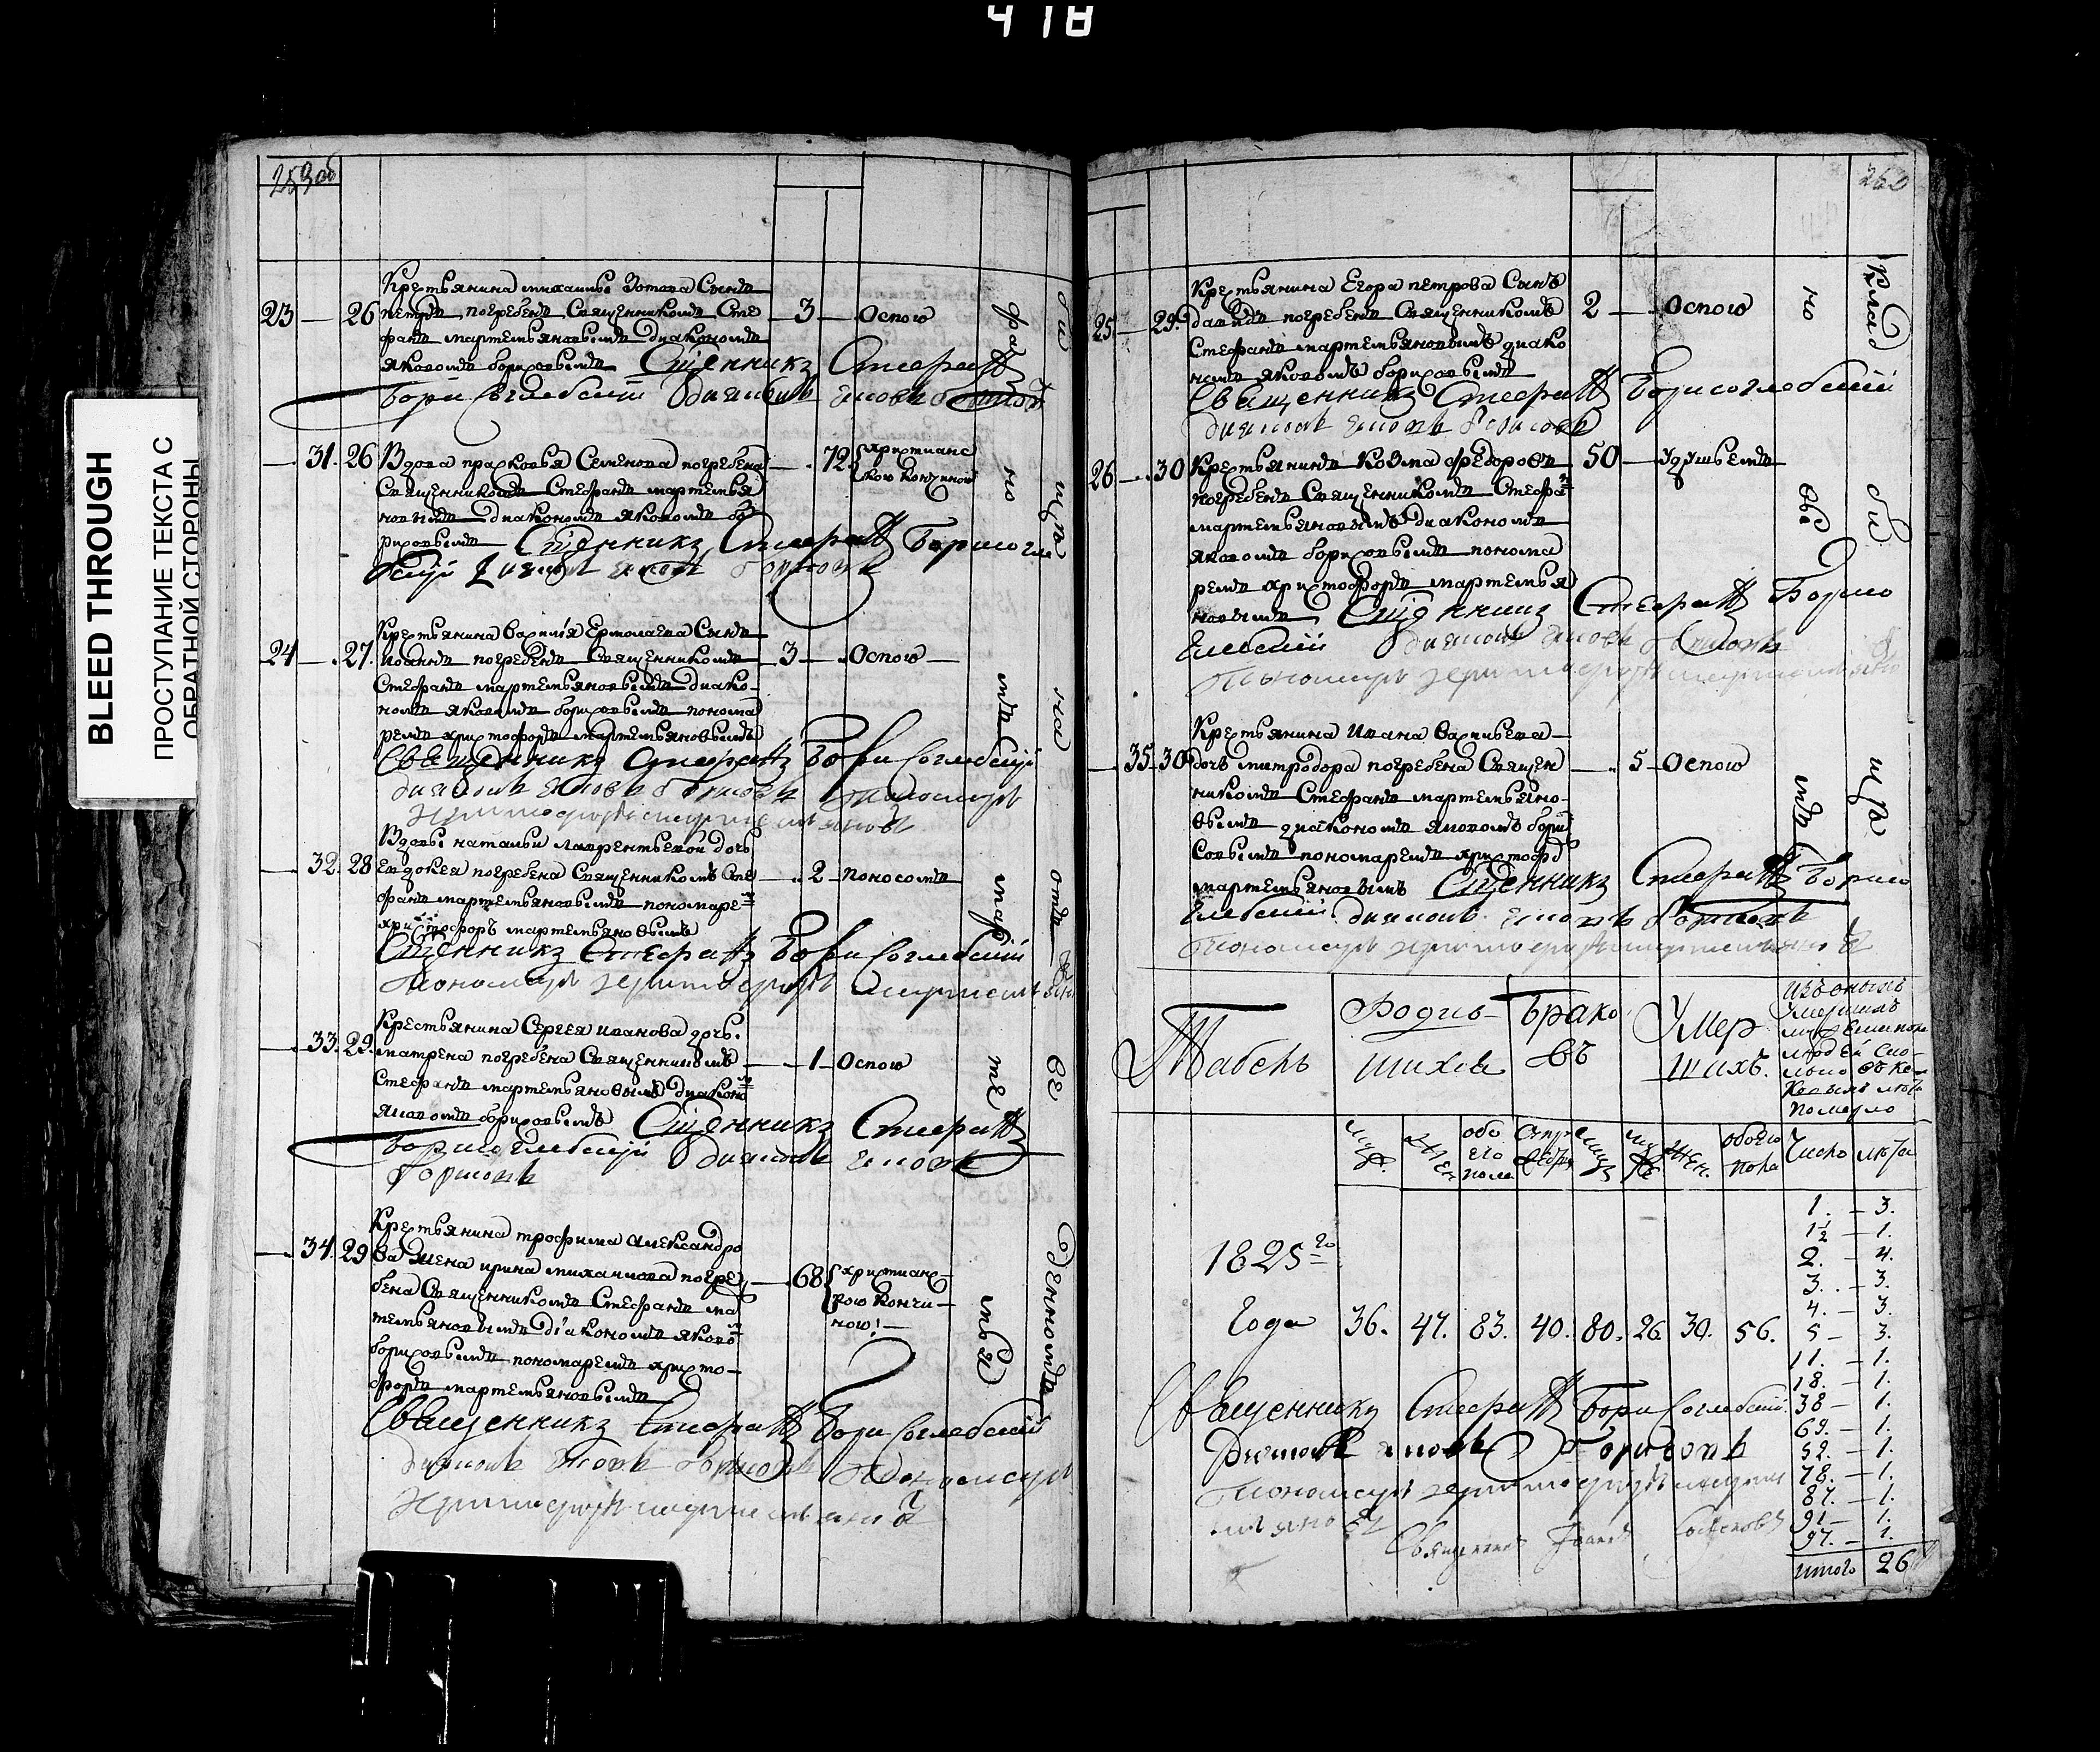 418
BLEED THROUGH
ПРОСТУПАНИЕ ТЕКСТА С
ОБРАТНОЙ СТОРОНЫ
259об
Крестьянина михаила Зотова Сынъ
23 — 26 петръ погребенъ Священникомъ Сте 3 — Оспою
фанъ мартемьяновымъ диакономъ
яковомъ борисовымъ Сщенникъ Стефанъ
Борисоглебский диаконъ яковъ борисовъ
31. 26 Вдова прасковья Семенова погребена — 72. христианс
Священникомъ Стефанъ мартемья кою кончиной
новымъ диакономъ яковомъ бо
рисовымъ Сщенникъ Стефанъ Борисогле
бский диаконъ яковъ борисовъ
Крестьянина василия Ермолаева Сынъ
24 — 27. иоаннъ погребенъ Священникомъ 3 — Оспою
Стефанъ мартемьяновымъ диако-
номъ яковомъ борисовымъ понома
ремъ христофоръ мартемьяновымъ
Священникъ Стефанъ Борисоглебский
диаконъ яковъ борисовъ пономарь
христофоръ мартемьяновъ
Вдовы натальи лаврентьевой дочь
32. 28 Евдокея погребена Священникомъ Сте — 2 — поносомъ
фанъ мартемьяновымъ пономаре
христофоръ мартемьяновымъ
Сщенникъ Стефанъ Борисоглебский
Пономарь христофоръ мартемьянов
Крестьянина Сергея иванова дочь.
33. 29. матрена погребена Священникомъ — 1 — Оспою
Стефанъ мартемьяновымъ диаконо
яковомъ борисовымъ Сщенникъ Стефанъ
Борисоглебский диаконъ яковъ
борисовъ
Крестьянина трофима александро
34. 29 ва жена ирина михаилова погре — 68 христианс-
бена Священникомъ Стефанъ ма кою кончи-
темьяновымъ диакономъ яково ною!
борисовымъ пономаремъ христо-
форъ мартемьяновымъ
Священникъ Стефанъ Борисоглебский
диаконъ яковъ борисовъ пономарь
христофоръ мартемьяновъ
260
Крестьянина Егора петрова Сынъ
25 — 29. давидъ погребенъ Священникомъ 2 — Оспою
Стефанъ мартемьяновымъ диако
номъ яковомъ борисовымъ
Священникъ Стефанъ Борисоглебский
диаконъ яковъ борисовъ
26 — 30 Крестьянинъ Козма федоровъ 50 — Удушьемъ
погребенъ Священникомъ Стефа
мартемьяновымъ диакономъ
яковомъ борисовымъ понома
ремъ христофоръ мартемья
новымъ Сщенникъ Стефанъ Борисо
глебский диаконъ яковъ борисовъ
Пономарь христофоръ мартемьяно
Крестьянина Ивана васильева
35 — 30 дочь митродора погребена Священ — 5 — Оспою
никомъ Стефанъ мартемьяно-
вымъ диакономъ яковомъ бори
совымъ пономаремъ христофо
мартемьяновымъ Сщенникъ Стефанъ Борисо
глебский диаконъ яковъ борисовъ
Пономарь христофоръ мартемьяновъ
Табель Родив- Брако Умер
шихся въ шихъ.
померло
обо
его
пола
обоего
пола
Число лета
1825го
Года 36. 47. 83. 40. 80. 26. 30. 56.
1. — 3.
1½ — 1.
2. — 4.
3. — 3.
4. — 3.
5 — 3.
11. — 1.
18. — 1.
38 — 1.
69. — 1.
52. — 1.
78. — 1.
87. — 1.
91 — 1.
97. — 1.
итого 26
Священникъ Стефанъ Борисоглебский
диаконъ яковъ борисовъ
Пономарь христофоръ мартем
ьяновъ
Священникъ